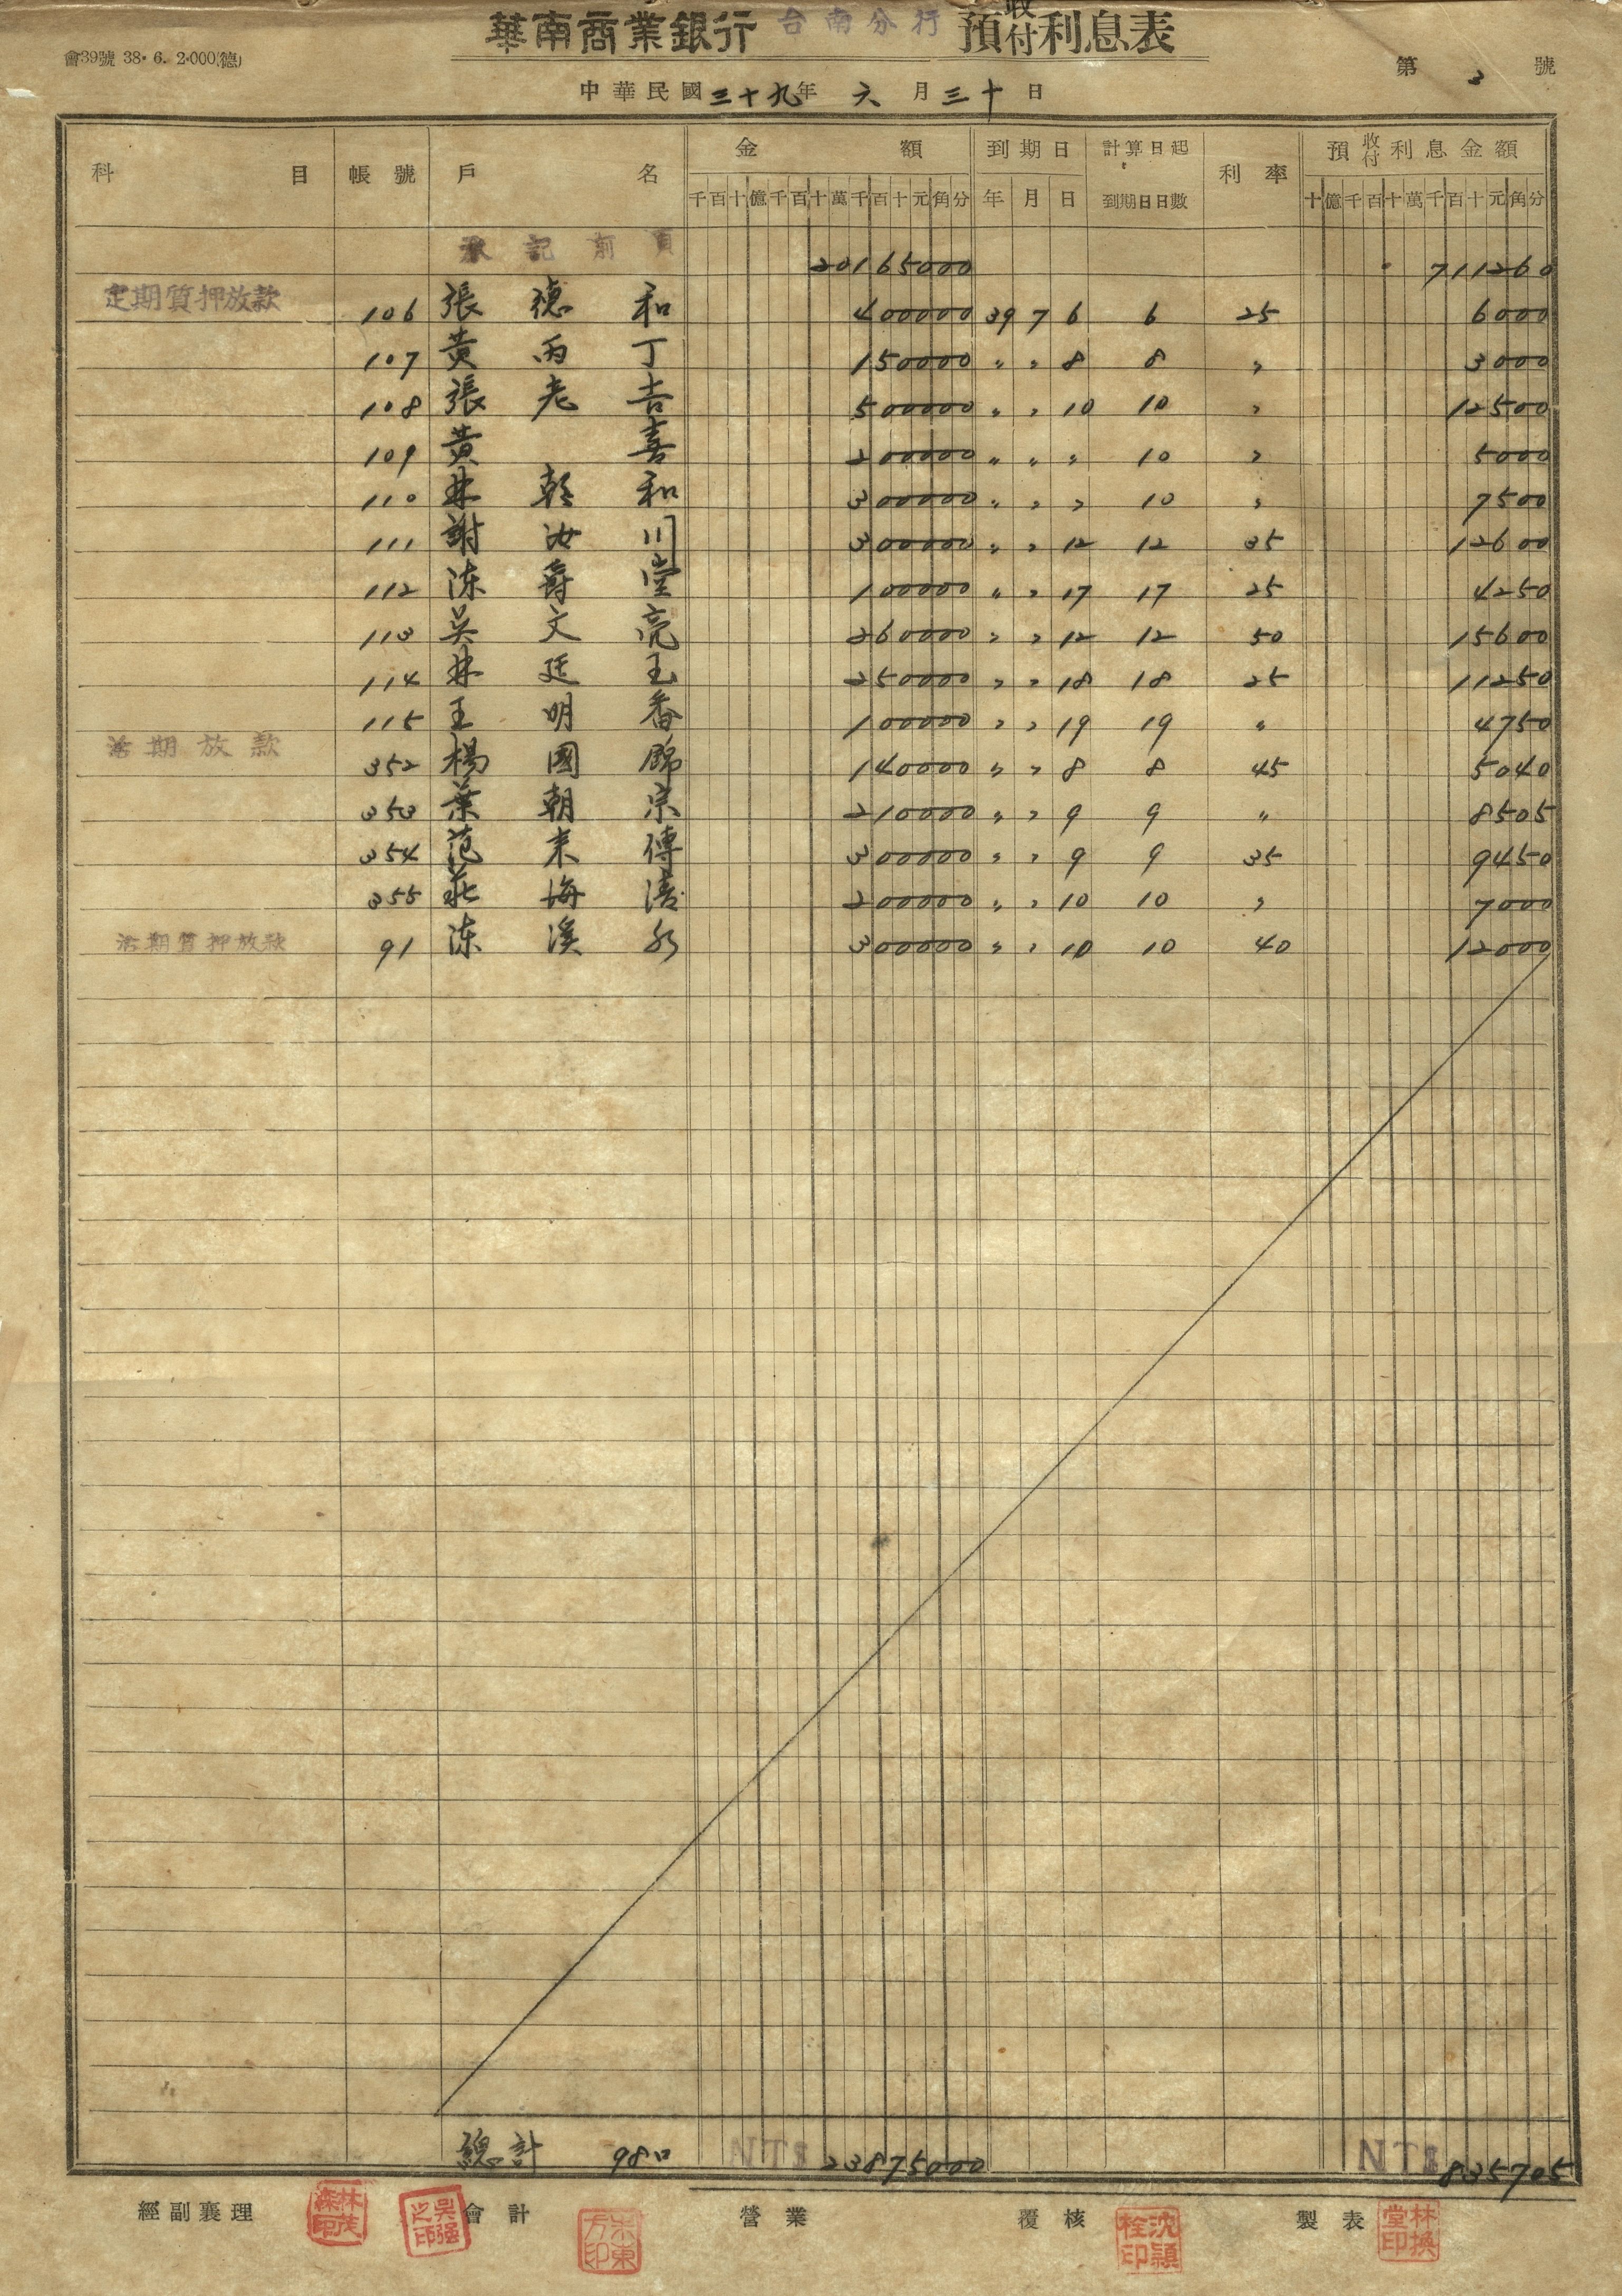 華南商業銀行 台南分行 預收付利息表
會39號 38.6.2.000(德)
第 3 號
中華民國三十九年 六 月 三十 日
科 目 帳 號 戶 名 金 額 到期日 計算日起到期日日數 利率 預收付利息金額
千百十億千百十萬千百十元角分 年 月 日 十億千百十萬千百十元角分
承記前頁 20165000 711260
定期質押放款 106 張德和 400000 39 7 6 6 25 6000
107 黃丙丁 150000 〃 〃 8 8 〃 3000
108 張老吉 500000 〃 〃 10 10 〃 12500
109 黃喜 200000 〃 〃 〃 10 〃 5000
110 林乾和 300000 〃 〃 〃 10 〃 7500
111 謝汝川 300000 〃 〃 12 12 35 12600
112 陈爵堂 100000 〃 〃 17 17 25 4250
113 吳文亮 260000 〃 〃 12 12 50 15600
114 林廷玉 250000 〃 〃 18 18 25 11250
115 王明番 100000 〃 〃 19 19 〃 4750
活期放款 352 楊國 140000 〃 〃 8 8 45 5040
353 葉朝宗 210000 〃 〃 9 9 〃 8505
354 范來傳 300000 〃 〃 9 9 35 9450
355 莊海 200000 〃 〃 10 10 〃 7000
活期質押放款 91 陈溪水 300000 〃 〃 10 10 40 12000
總計 98口 NT$ 23875000 NT$ 835705
經副襄理 會計 營業 覆核 製表
林茂森印 吳强之印 朱東方印 沈頴栓印 林換堂印